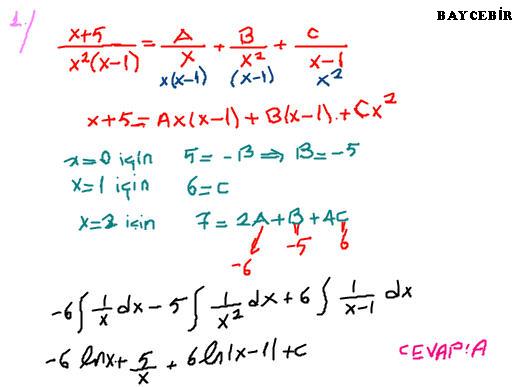 BAYCEBİR
1./
x+5/x²(x-1) = A/x + B/x² + C/x-1
x(x-1) (x-1) x²
x+5=Ax(x-1)+B(x-1)+Cx²
x=0 için 5=-B⇒B=-5
x=1 için 6=C
x=2 için 7=2A+B+4C
-6 -5 6
-6∫1/x dx-5∫1/x² dx+6∫1/x-1 dx
-6 lnx+5/x+6ln|x-1)+c
CEVAP:A